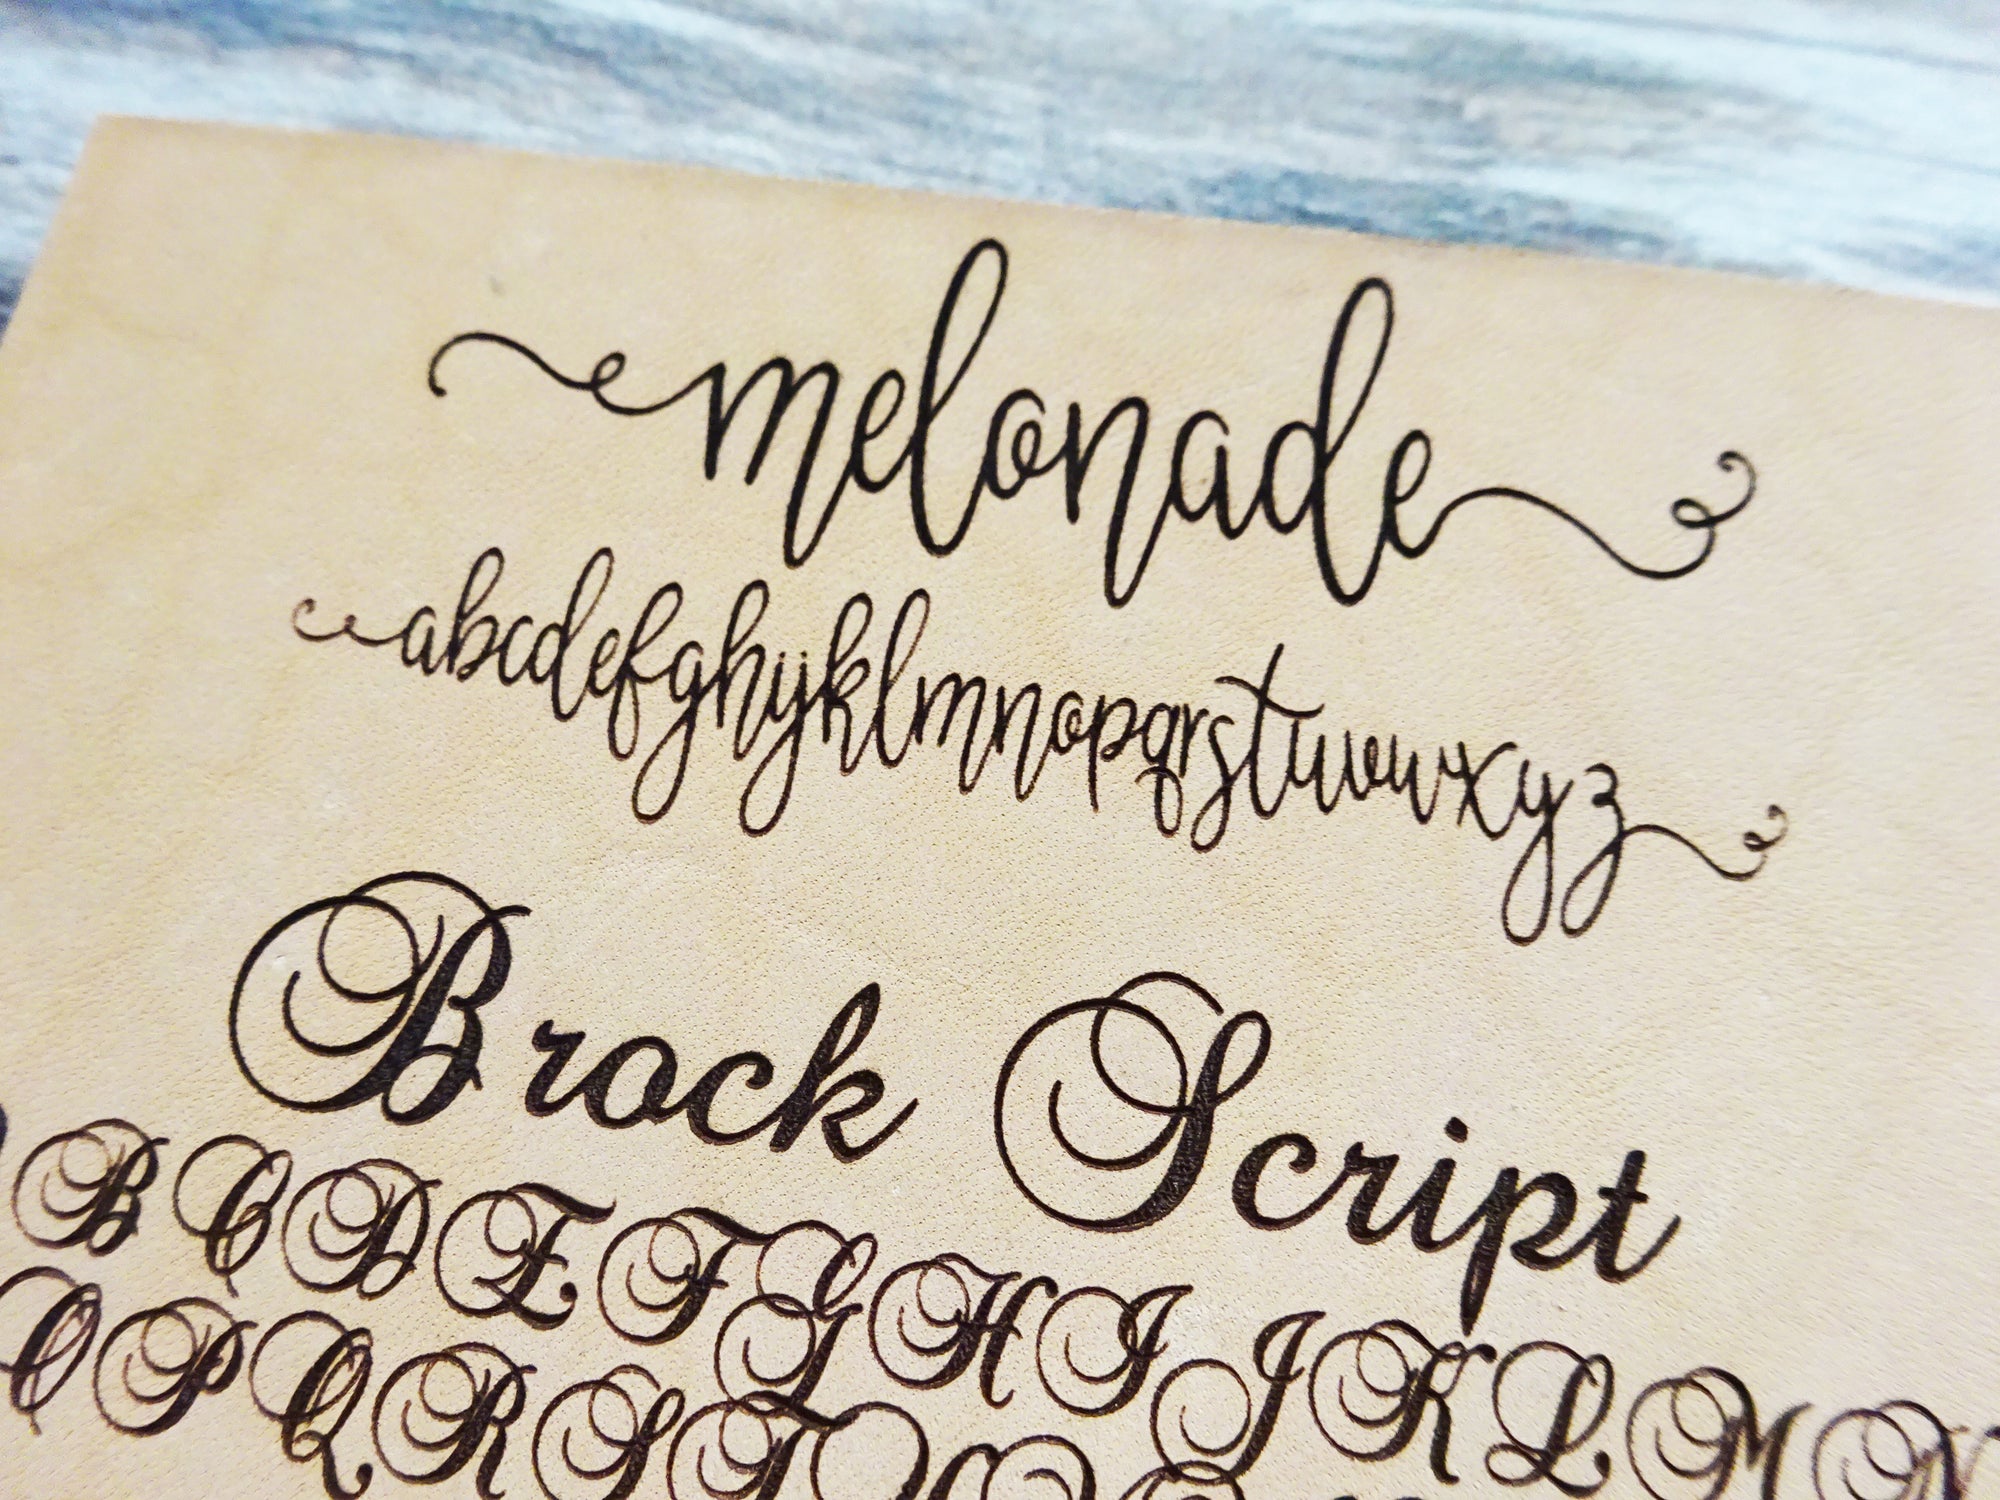 melonade
abcdefghijklmnopqrstuvwxyz
Brock Script
B C D E F G H I J K L M N
O P Q R S T